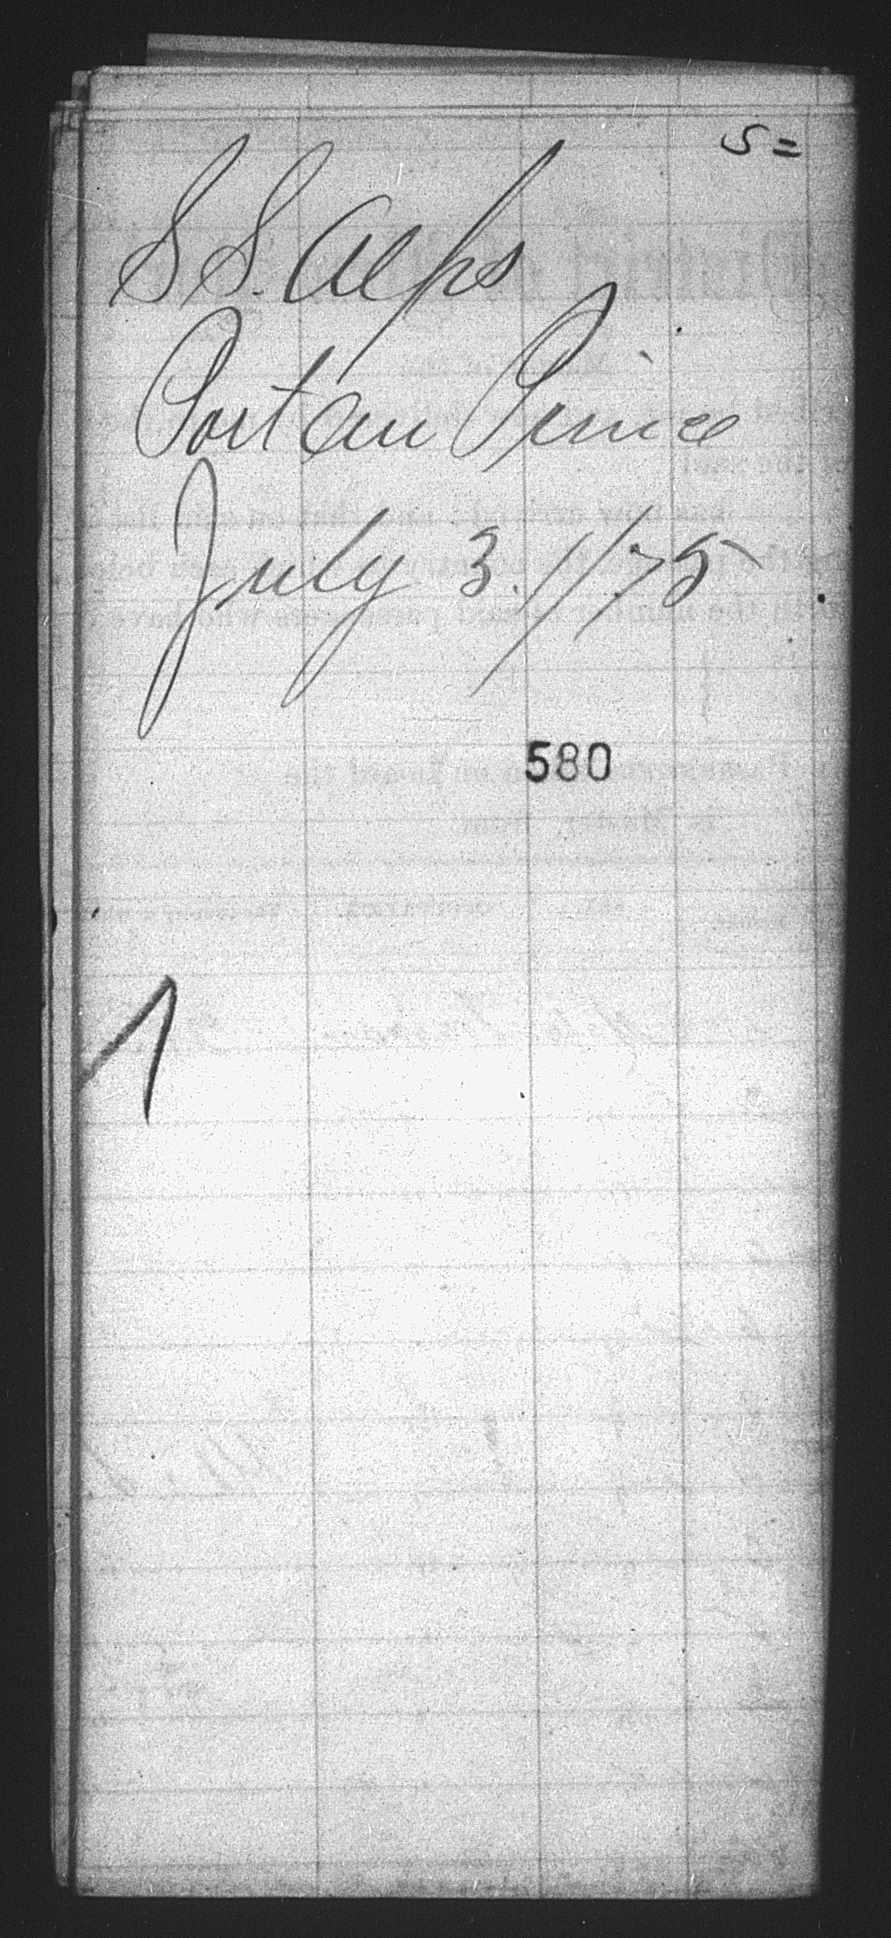 5=
S S. Alps
Port au Prince
July 3.//75
580
1